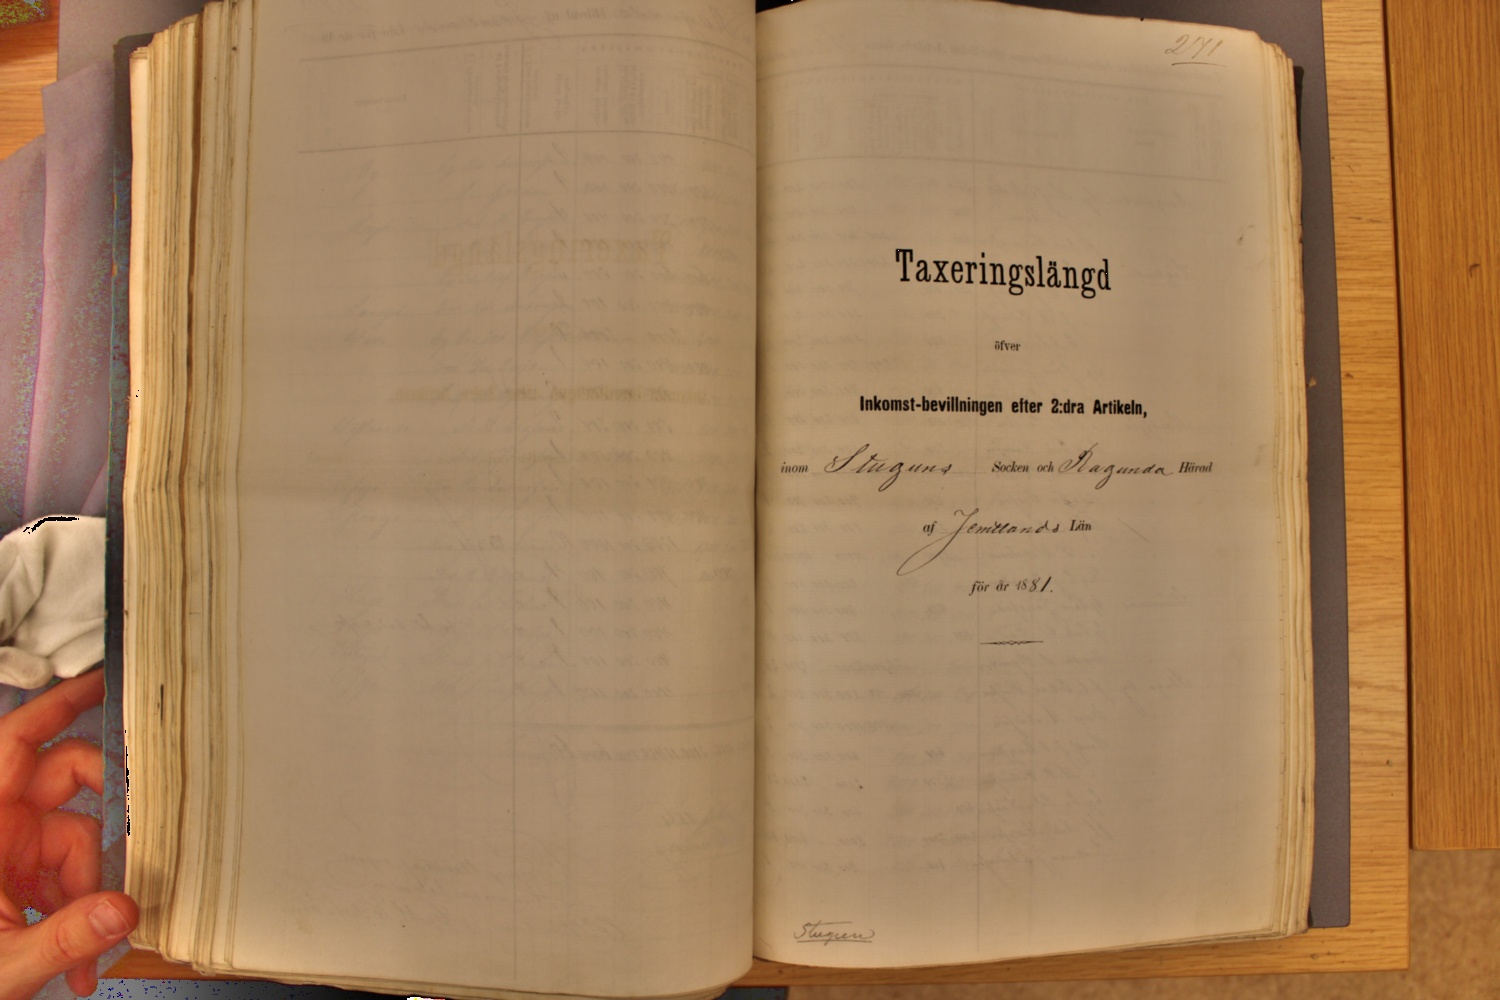 271
Taxeringslängd
öfver
Inkomst-bevillningen efter 2:dra Artikeln,
inom Stuguns Socken och Ragunda Härad
af Jemtlands Län
för år 1881.
Stugun